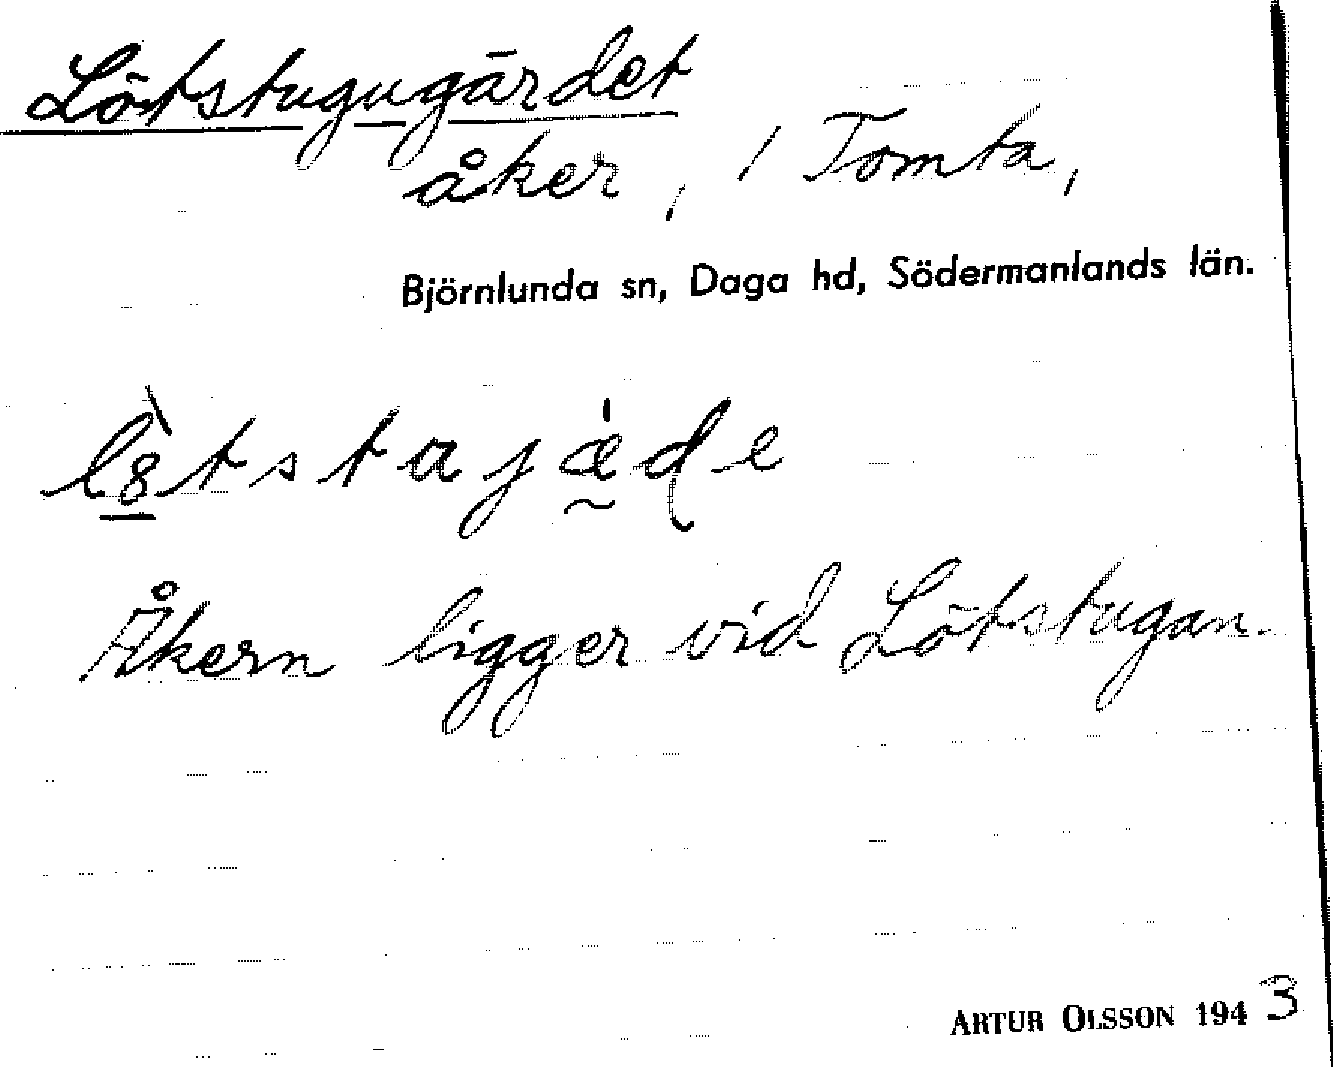 Lötstugugärdet
åker, / Tomta,
Björnlunda sn, Daga hd, Södermanlands län.
Åkern ligger vid Lötstugan.
ARTUR OLSSON 1943